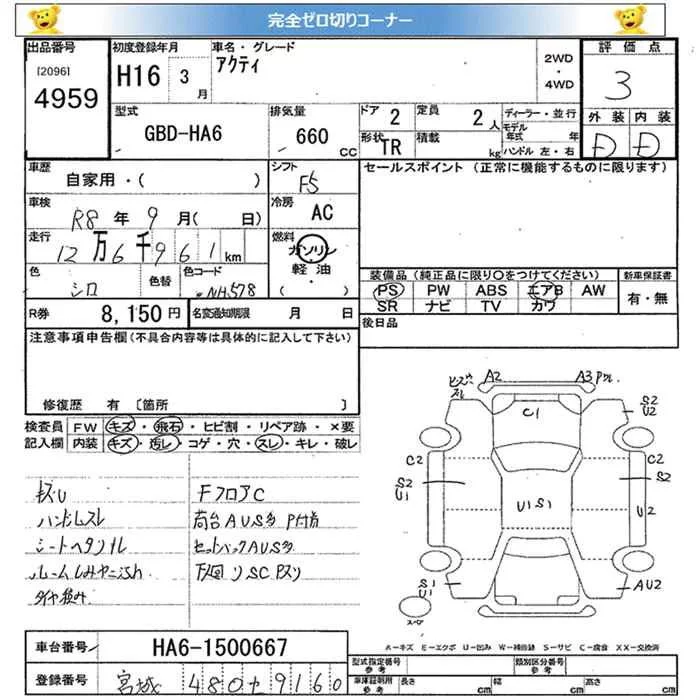 完全ゼロ切りコーナー
出品番号 初度登録年月 車名・グレード 評価点
[2096] H16 3 月 アクティ 2WD・4WD 3
4959
型式 排気量 ドア 定員 ディーラー・並行 外装 内装
GBD-HA6 660 CC 2 2人 モデル年式 年 D D
形状 TR 積載 kg ハンドル 左・右
車歴 自家用・( ) シフト F5 セールスポイント (正常に機能するものに限ります)
車検 R8 年 9 月( 日) 冷房 AC
走行 12万6千961km 燃料 ガソリン・軽油・( )
色 シロ 色替 色コード NH578 装備品 (純正品に限り○をつけてください) 新車保証書
PS PW ABS エアB AW 有・無
SR ナビ TV カワ
R券 8,150円 名変通知期限 月 日 後日品
注意事項申告欄(不具合内容等は具体的に記入して下さい)
修復歴 有 〔箇所 〕
検査員 FW キズ・飛石・ヒビ割・リペア跡・×要
記入欄 内装 キズ・汚レ・コゲ・穴・スレ・キレ・破レ
キズU FフロアC
ハンドルスレ 荷台AUS多 P付着
シートヘタリ セットバックAUS多
ルームしみヤニ 下廻りSC
タイヤ積み
A2 A3
C1
S2 U2
C2 C2
S2 U1 S2
U1S1 U2
S1 U1 AU2
スペア
A=キズ E=エクボ U=凹み W=補修跡 S=サビ C=腐食 XX=交換済
車台番号 HA6-1500667
型式指定番号 参考 類別区分番号 参考
登録番号 宮城 480 そ 9160
車庫証明用 参考 長さ cm 幅 cm 高さ cm